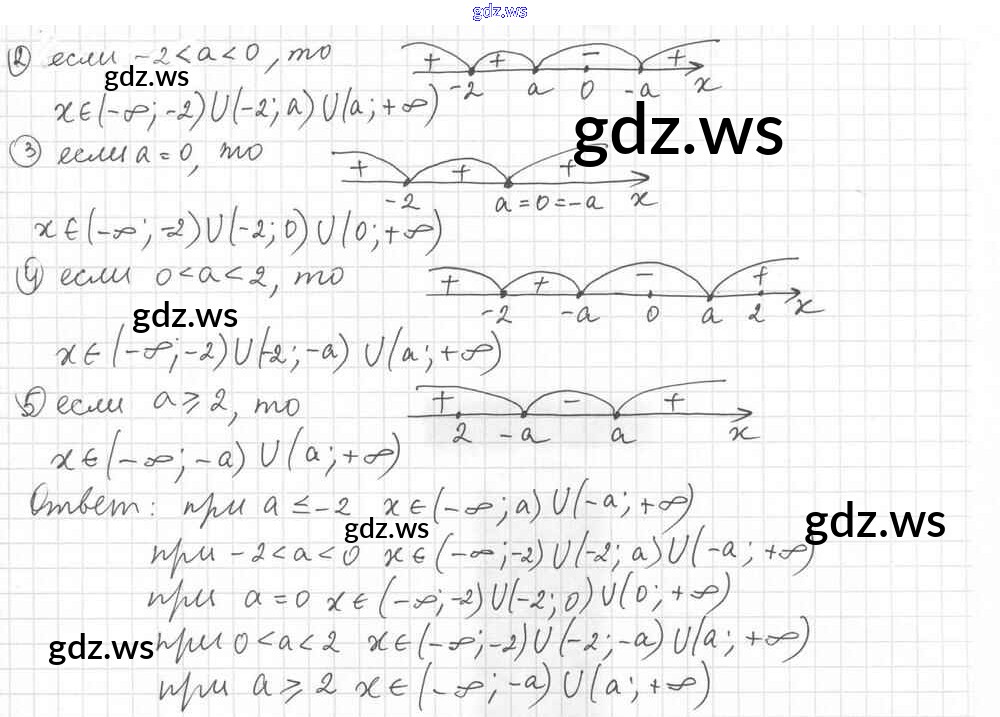 gdz.ws
② если -2 < a < 0, то
+ + - +
-2 a 0 -a x
gdz.ws
x∈(-∞; -2)∪(-2; a)∪(a; +∞)
gdz.ws
③ если a = 0, то
+ + +
-2 a=0=-a x
x∈(-∞; -2)∪(-2; 0)∪(0; +∞)
④ если 0 < a < 2, то
+ + - +
-2 -a 0 a 2 x
gdz.ws
x∈(-∞; -2)∪(-2; -a)∪(a; +∞)
⑤ если a ⩾ 2, то
+ - +
2 -a a x
x∈(-∞; -a)∪(a; +∞)
Ответ: при a ≤ -2 x∈(-∞; a)∪(-a; +∞)
gdz.ws
gdz.ws
при -2 < a < 0 x∈(-∞; -2)∪(-2; a)∪(-a; +∞)
при a = 0 x∈(-∞; -2)∪(-2; 0)∪(0; +∞)
gdz.ws
при 0 < a < 2 x∈(-∞; -2)∪(-2; -a)∪(a; +∞)
при a ⩾ 2 x∈(-∞; -a)∪(a; +∞)